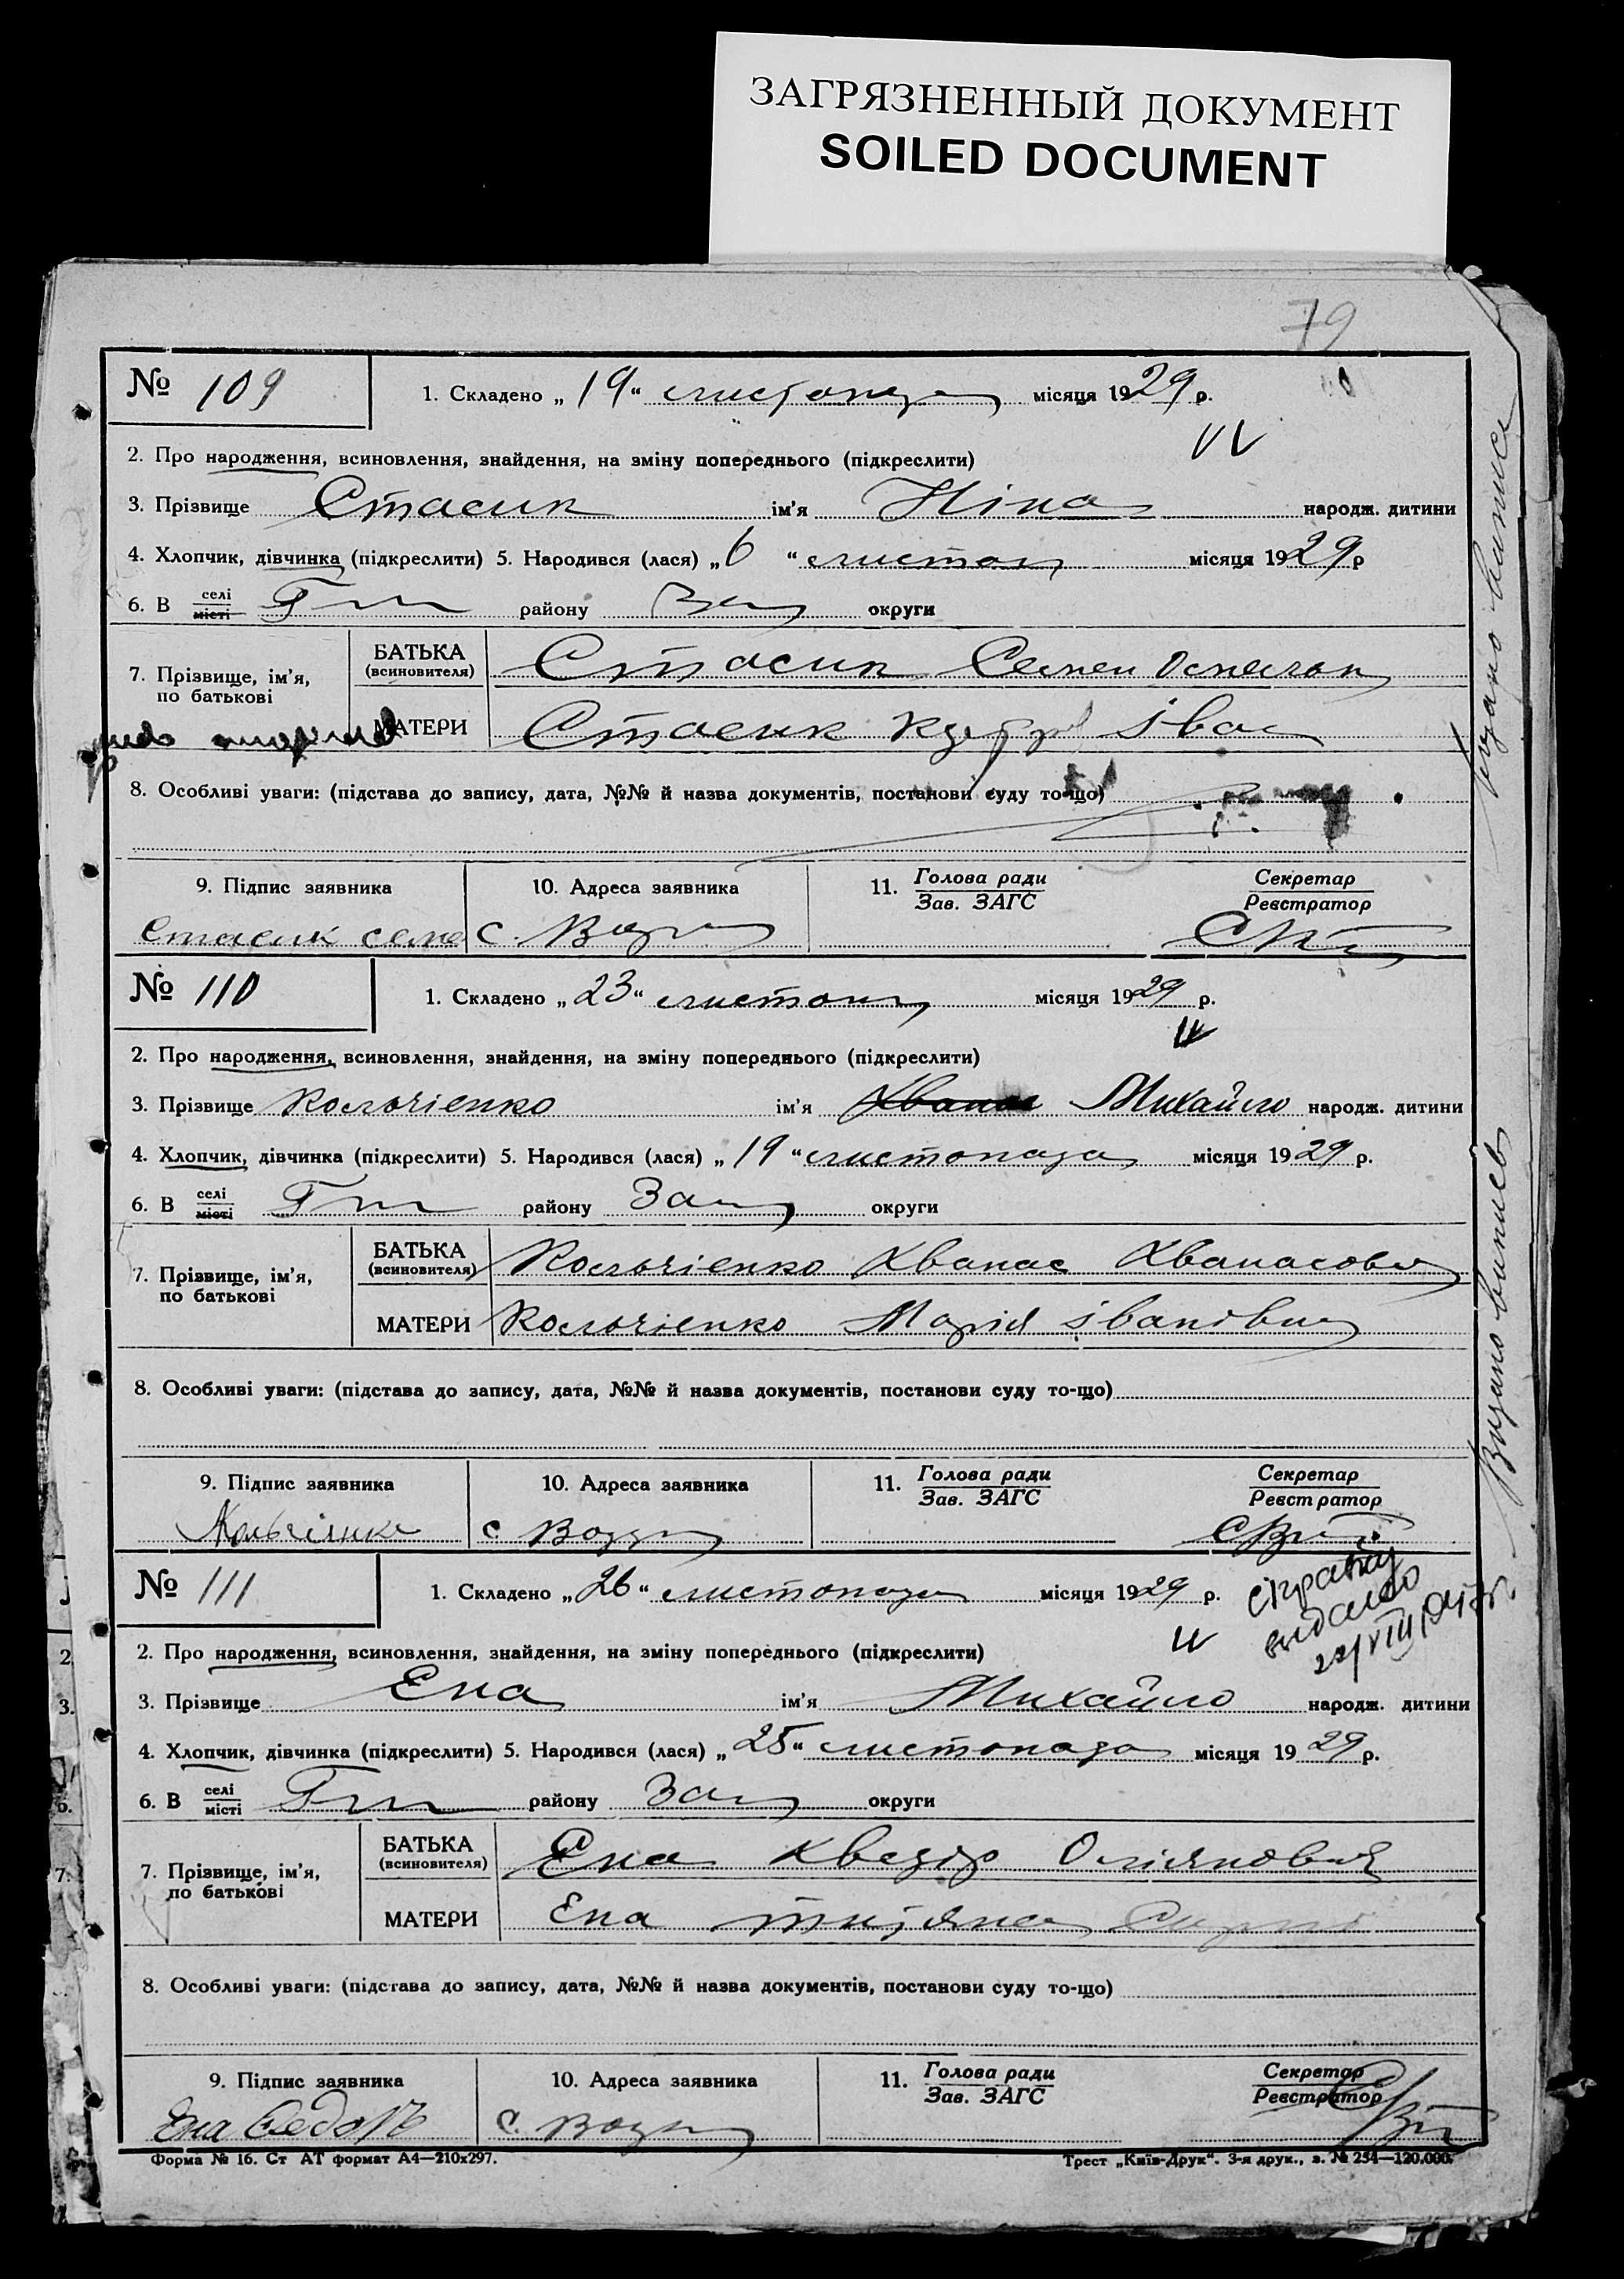 ЗАГРЯЗНЕННЫЙ ДОКУМЕНТ
SOILED DOCUMENT
79
№ 109
1. Складено „19“ листопада місяця 1929 р.
2. Про народження, всиновлення, знайдення, на зміну попереднього (підкреслити)
3. Прізвище Стасик ім'я Ніна народж. дитини
4. Хлопчик, дівчинка (підкреслити) 5. Народився (лася) „6“ листоп місяця 1929 р
6. В селі місті району округи
7. Прізвище, ім'я, по батькові
БАТЬКА (всиновителя) Стасик Семен
МАТЕРИ Стасик Іван
8. Особливі уваги: (підстава до запису, дата, №№ й назва документів, постанови суду то-що)
9. Підпис заявника
10. Адреса заявника
11. Голова ради Зав. ЗАГС
Секретар Реєстратор
Стасик семе с.
№ 110
1. Складено „23“ листоп місяця 1929 р.
2. Про народження, всиновлення, знайдення, на зміну попереднього (підкреслити)
3. Прізвище Кольчієнко ім'я Михайло народж. дитини
4. Хлопчик, дівчинка (підкреслити) 5. Народився (лася) „19“ листопада місяця 1929 р.
6. В селі місті району Зап округи
7. Прізвище, ім'я, по батькові
БАТЬКА (всиновителя) Кольчієнко Хванас Хванасови
МАТЕРИ Кольчієнко Марія Іванівна
8. Особливі уваги: (підстава до запису, дата, №№ й назва документів, постанови суду то-що)
9. Підпис заявника
10. Адреса заявника
11. Голова ради Зав. ЗАГС
Секретар Реєстратор
с.
№ 111
1. Складено „26“ листопада місяця 1929 р.
справку
видано
22/VIII
2. Про народження, всиновлення, знайдення, на зміну попереднього (підкреслити)
3. Прізвище Єна ім'я Михайло народж. дитини
4. Хлопчик, дівчинка (підкреслити) 5. Народився (лася) „25“ листопада місяця 1929 р.
6. В селі місті району Зап округи
7. Прізвище, ім'я, по батькові
БАТЬКА (всиновителя) Єна Хведір
МАТЕРИ Єна
8. Особливі уваги: (підстава до запису, дата, №№ й назва документів, постанови суду то-що)
9. Підпис заявника
10. Адреса заявника
11. Голова ради Зав. ЗАГС
Секретар Реєстратор
Єна с.
Форма № 16. Ст АТ формат А4—210х297.
Трест „Київ-Друк“. 3-я друк., з. № 254—120.000.
Видано выпись
Видано выпись